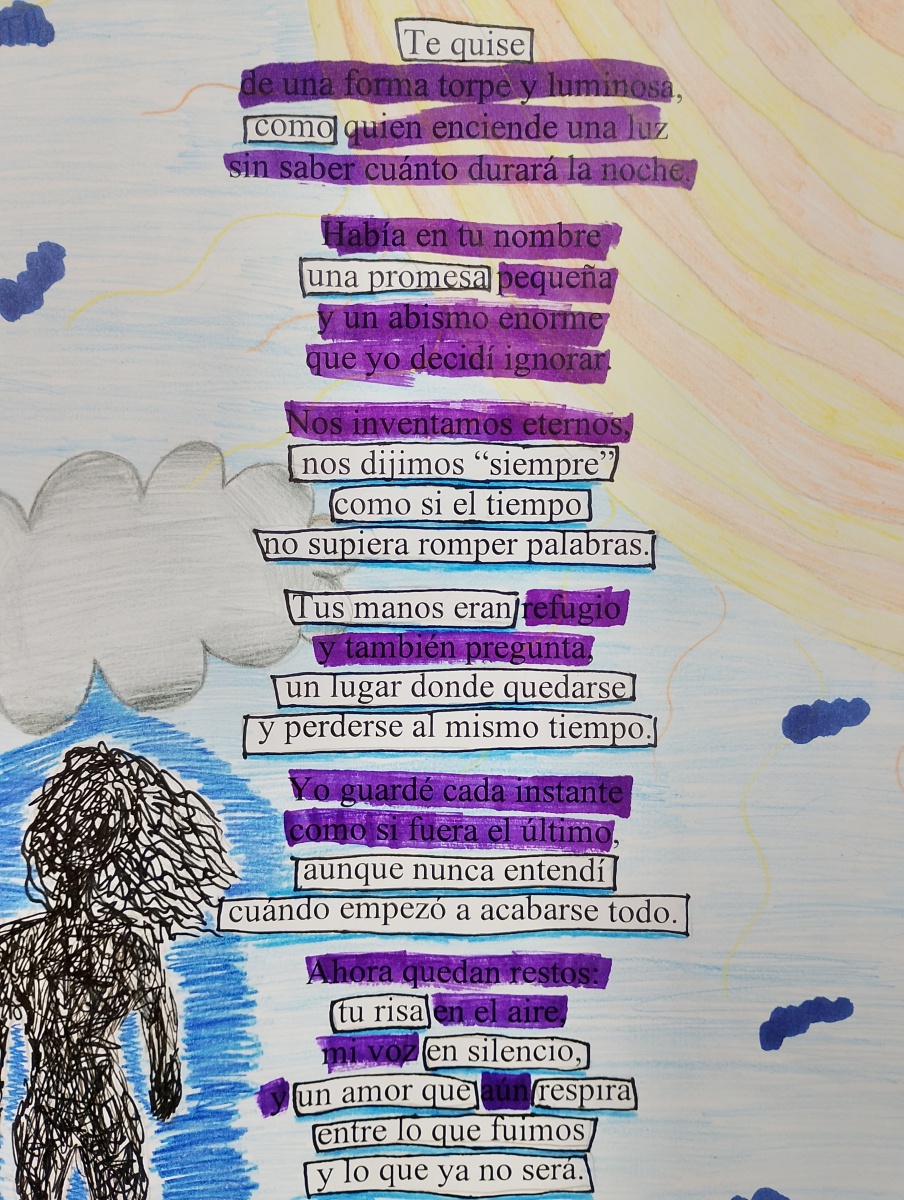 Te quise
de una forma torpe y luminosa,
como quien enciende una luz
sin saber cuánto durará la noche.
Había en tu nombre
una promesa pequeña
y un abismo enorme
que yo decidí ignorar.
Nos inventamos eternos,
nos dijimos “siempre”
como si el tiempo
no supiera romper palabras.
Tus manos eran refugio
y también pregunta,
un lugar donde quedarse
y perderse al mismo tiempo.
Yo guardé cada instante
como si fuera el último,
aunque nunca entendí
cuándo empezó a acabarse todo.
Ahora quedan restos:
tu risa en el aire,
mi voz en silencio,
y un amor que aún respira
entre lo que fuimos
y lo que ya no será.